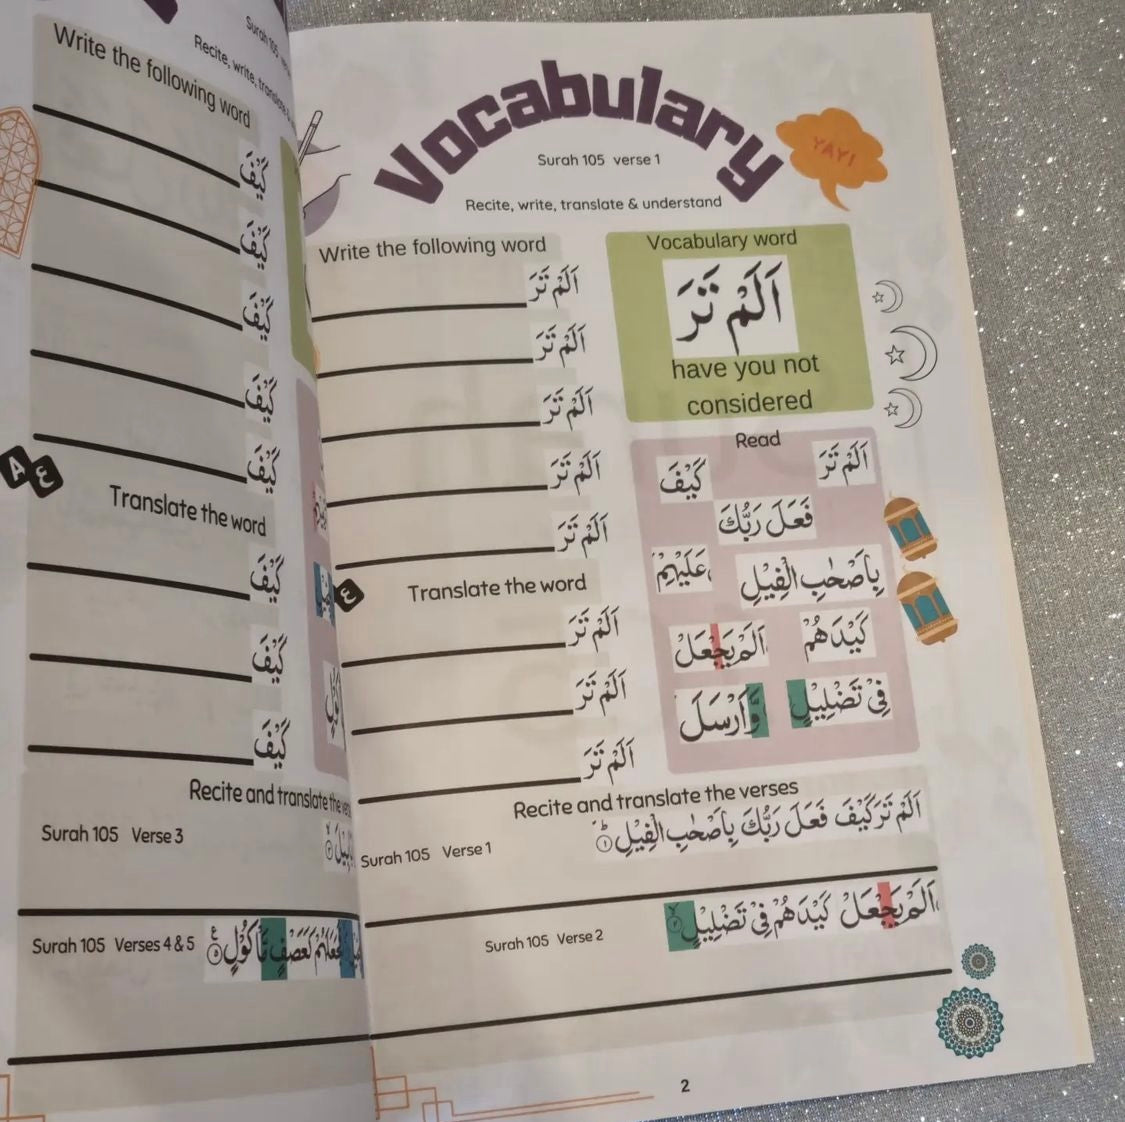 Surah 105
Recite, write,
Write the following word
كَيْفَ
كَيْفَ
كَيْفَ
كَيْفَ
كَيْفَ
A
ع
Translate the word
كَيْفَ
كَيْفَ
كَيْفَ
Recite and translate the
Surah 105 Verse 3
Surah 105 Verses 4 & 5
مَّاْكُوْلٍ
Vocabulary
YAY!
Surah 105 verse 1
Recite, write, translate & understand
Write the following word
اَلَمْ تَرَ
اَلَمْ تَرَ
اَلَمْ تَرَ
اَلَمْ تَرَ
اَلَمْ تَرَ
ع
Translate the word
اَلَمْ تَرَ
اَلَمْ تَرَ
اَلَمْ تَرَ
Vocabulary word
اَلَمْ تَرَ
have you not
considered
Read
اَلَمْ تَرَ كَيْفَ
فَعَلَ رَبُّكَ
بِاَصْحٰبِ الْفِيْلِ عَلَيْهِمْ
كَيْدَهُمْ اَلَمْ يَجْعَلْ
فِيْ تَضْلِيْلٍ وَّاَرْسَلَ
Recite and translate the verses
اَلَمْ تَرَ كَيْفَ فَعَلَ رَبُّكَ بِاَصْحٰبِ الْفِيْلِ ۱
Surah 105 Verse 1
اَلَمْ يَجْعَلْ كَيْدَهُمْ فِيْ تَضْلِيْلٍ ۲
Surah 105 Verse 2
2